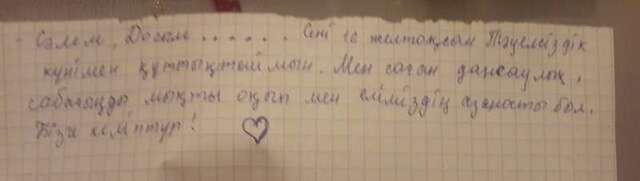 - Сәлем, Досым . . . . . . Сені 16 желтоқсан Тәуелсіздік
күнімен құттықтаймын. Мен саған денсаулық,
сабағыңды мықты оқып мен еліміздің азаматы бол.
Бізге келіп тұр! ♡